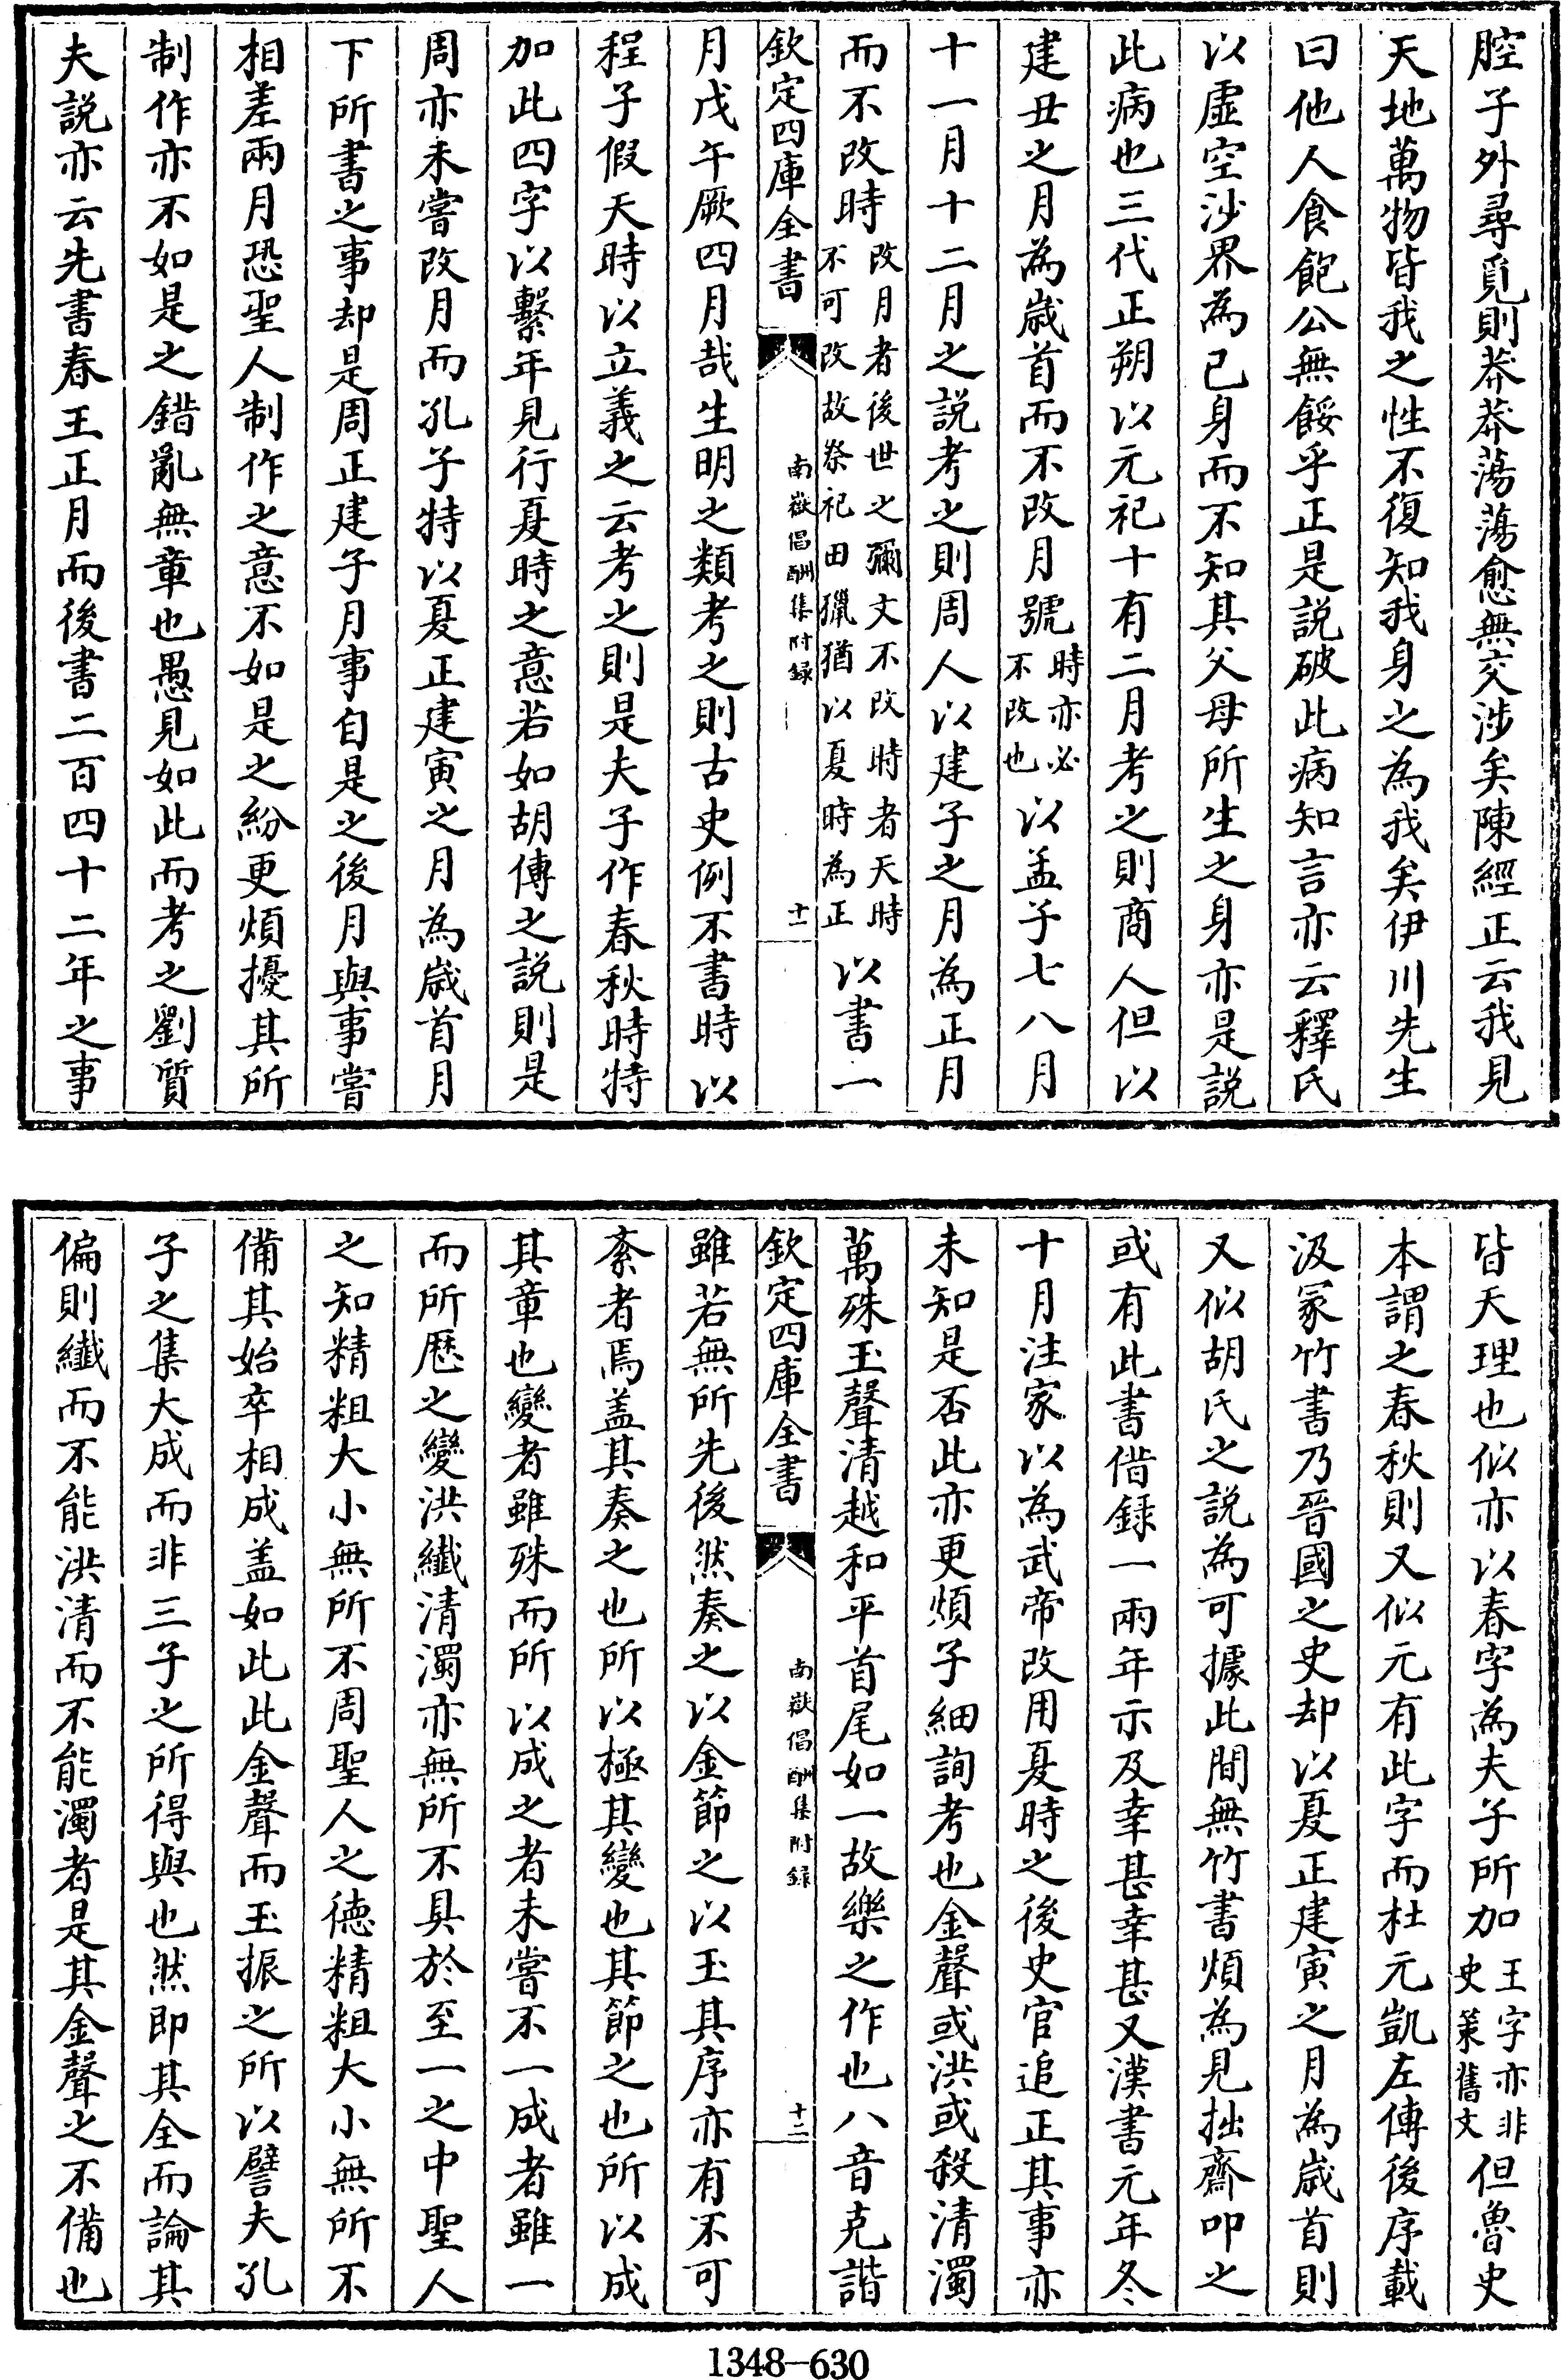 腔子外尋覓則莽莽蕩蕩愈無交涉矣陳經正云我見
天地萬物皆我之性不復知我身之為我矣伊川先生
曰他人食飽公無餒乎正是説破此病知言亦云釋氏
以虛空沙界為已身而不知其父母所生之身亦是説
此病也三代正朔以元祀十有二月考之則商人但以
建丑之月為歲首而不改月號時亦必不改也以孟子七八月
十一月十二月之説考之則周人以建子之月為正月
而不改時改月者後世之彌文不改時者天時不可改故祭祀田獵猶以夏時為正以書一
欽定四庫全書 南嶽倡酬集附録 十一
月戊午厥四月哉生明之類考之則古史例不書時以
程子假天時以立義之云考之則是夫子作春秋時特
加此四字以繫年見行夏時之意若如胡傳之説則是
周亦未嘗改月而孔子特以夏正建寅之月為歲首月
下所書之事却是周正建子月事自是之後月與事嘗
相差兩月恐聖人制作之意不如是之紛更煩擾其所
制作亦不如是之錯亂無章也愚見如此而考之劉質
夫説亦云先書春王正月而後書二百四十二年之事
皆天理也似亦以春字為夫子所加王字亦非史策舊文但魯史
本謂之春秋則又似元有此字而杜元凱左傳後序載
汲冢竹書乃晉國之史却以夏正建寅之月為歲首則
又似胡氏之説為可據此間無竹書煩為見拙齋叩之
或有此書借録一兩年示及幸甚幸甚又漢書元年冬
十月注家以為武帝改用夏時之後史官追正其事亦
未知是否此亦更煩子細詢考也金聲或洪或殺清濁
萬殊玉聲清越和平首尾如一故樂之作也八音克諧
欽定四庫全書 南嶽倡酬集附録 十二
雖若無所先後然奏之以金節之以玉其序亦有不可
紊者焉盖其奏之也所以極其變也其節之也所以成
其章也變者雖殊而所以成之者未嘗不一成者雖一
而所歷之變洪纖清濁亦無所不具於至一之中聖人
之知精粗大小無所不周聖人之德精粗大小無所不
備其始卒相成盖如此此金聲而玉振之所以譬夫孔
子之集大成而非三子之所得與也然即其全而論其
偏則纖而不能洪清而不能濁者是其金聲之不備也
1348-630